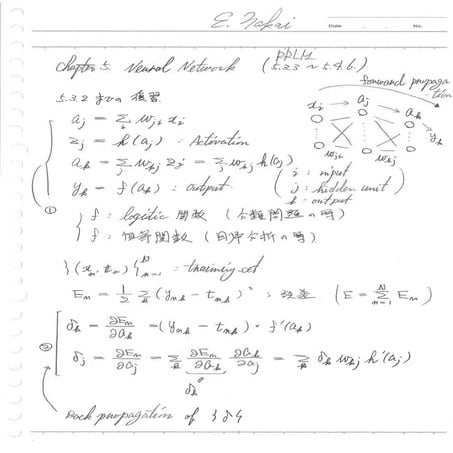 E. Nakai
Date No.
Chapter 5. Neural Network (PRML 5.3.3 ~ 5.4.6.)
forward propagation
5.3.2 までの復習
x_i → a_j → a_k
y_k
w_ji w_kj
a_j = Σ_i w_ji x_i
z_j = h(a_j) : Activation
a_k = Σ_j w_kj z_j = Σ_j w_kj h(a_j)
y_k = f(a_k) : output
i : input
j : hidden unit
k : output
①
f : logistic 関数 (分類問題の時)
f : 恒等関数 (回帰分析の時)
{(x_n, t_n)}_{n=1}^N : training set
E_n = 1/2 Σ_k (y_nk - t_nk)^2 : 誤差 (E = Σ_{n=1}^N E_n)
②
δ_k = ∂E_n/∂a_k = (y_nk - t_nk) · f'(a_k)
δ_j = ∂E_n/∂a_j = Σ_k ∂E_n/∂a_k ∂a_k/∂a_j = Σ_k δ_k w_kj h'(a_j)
δ_k
Back propagation of {δ}